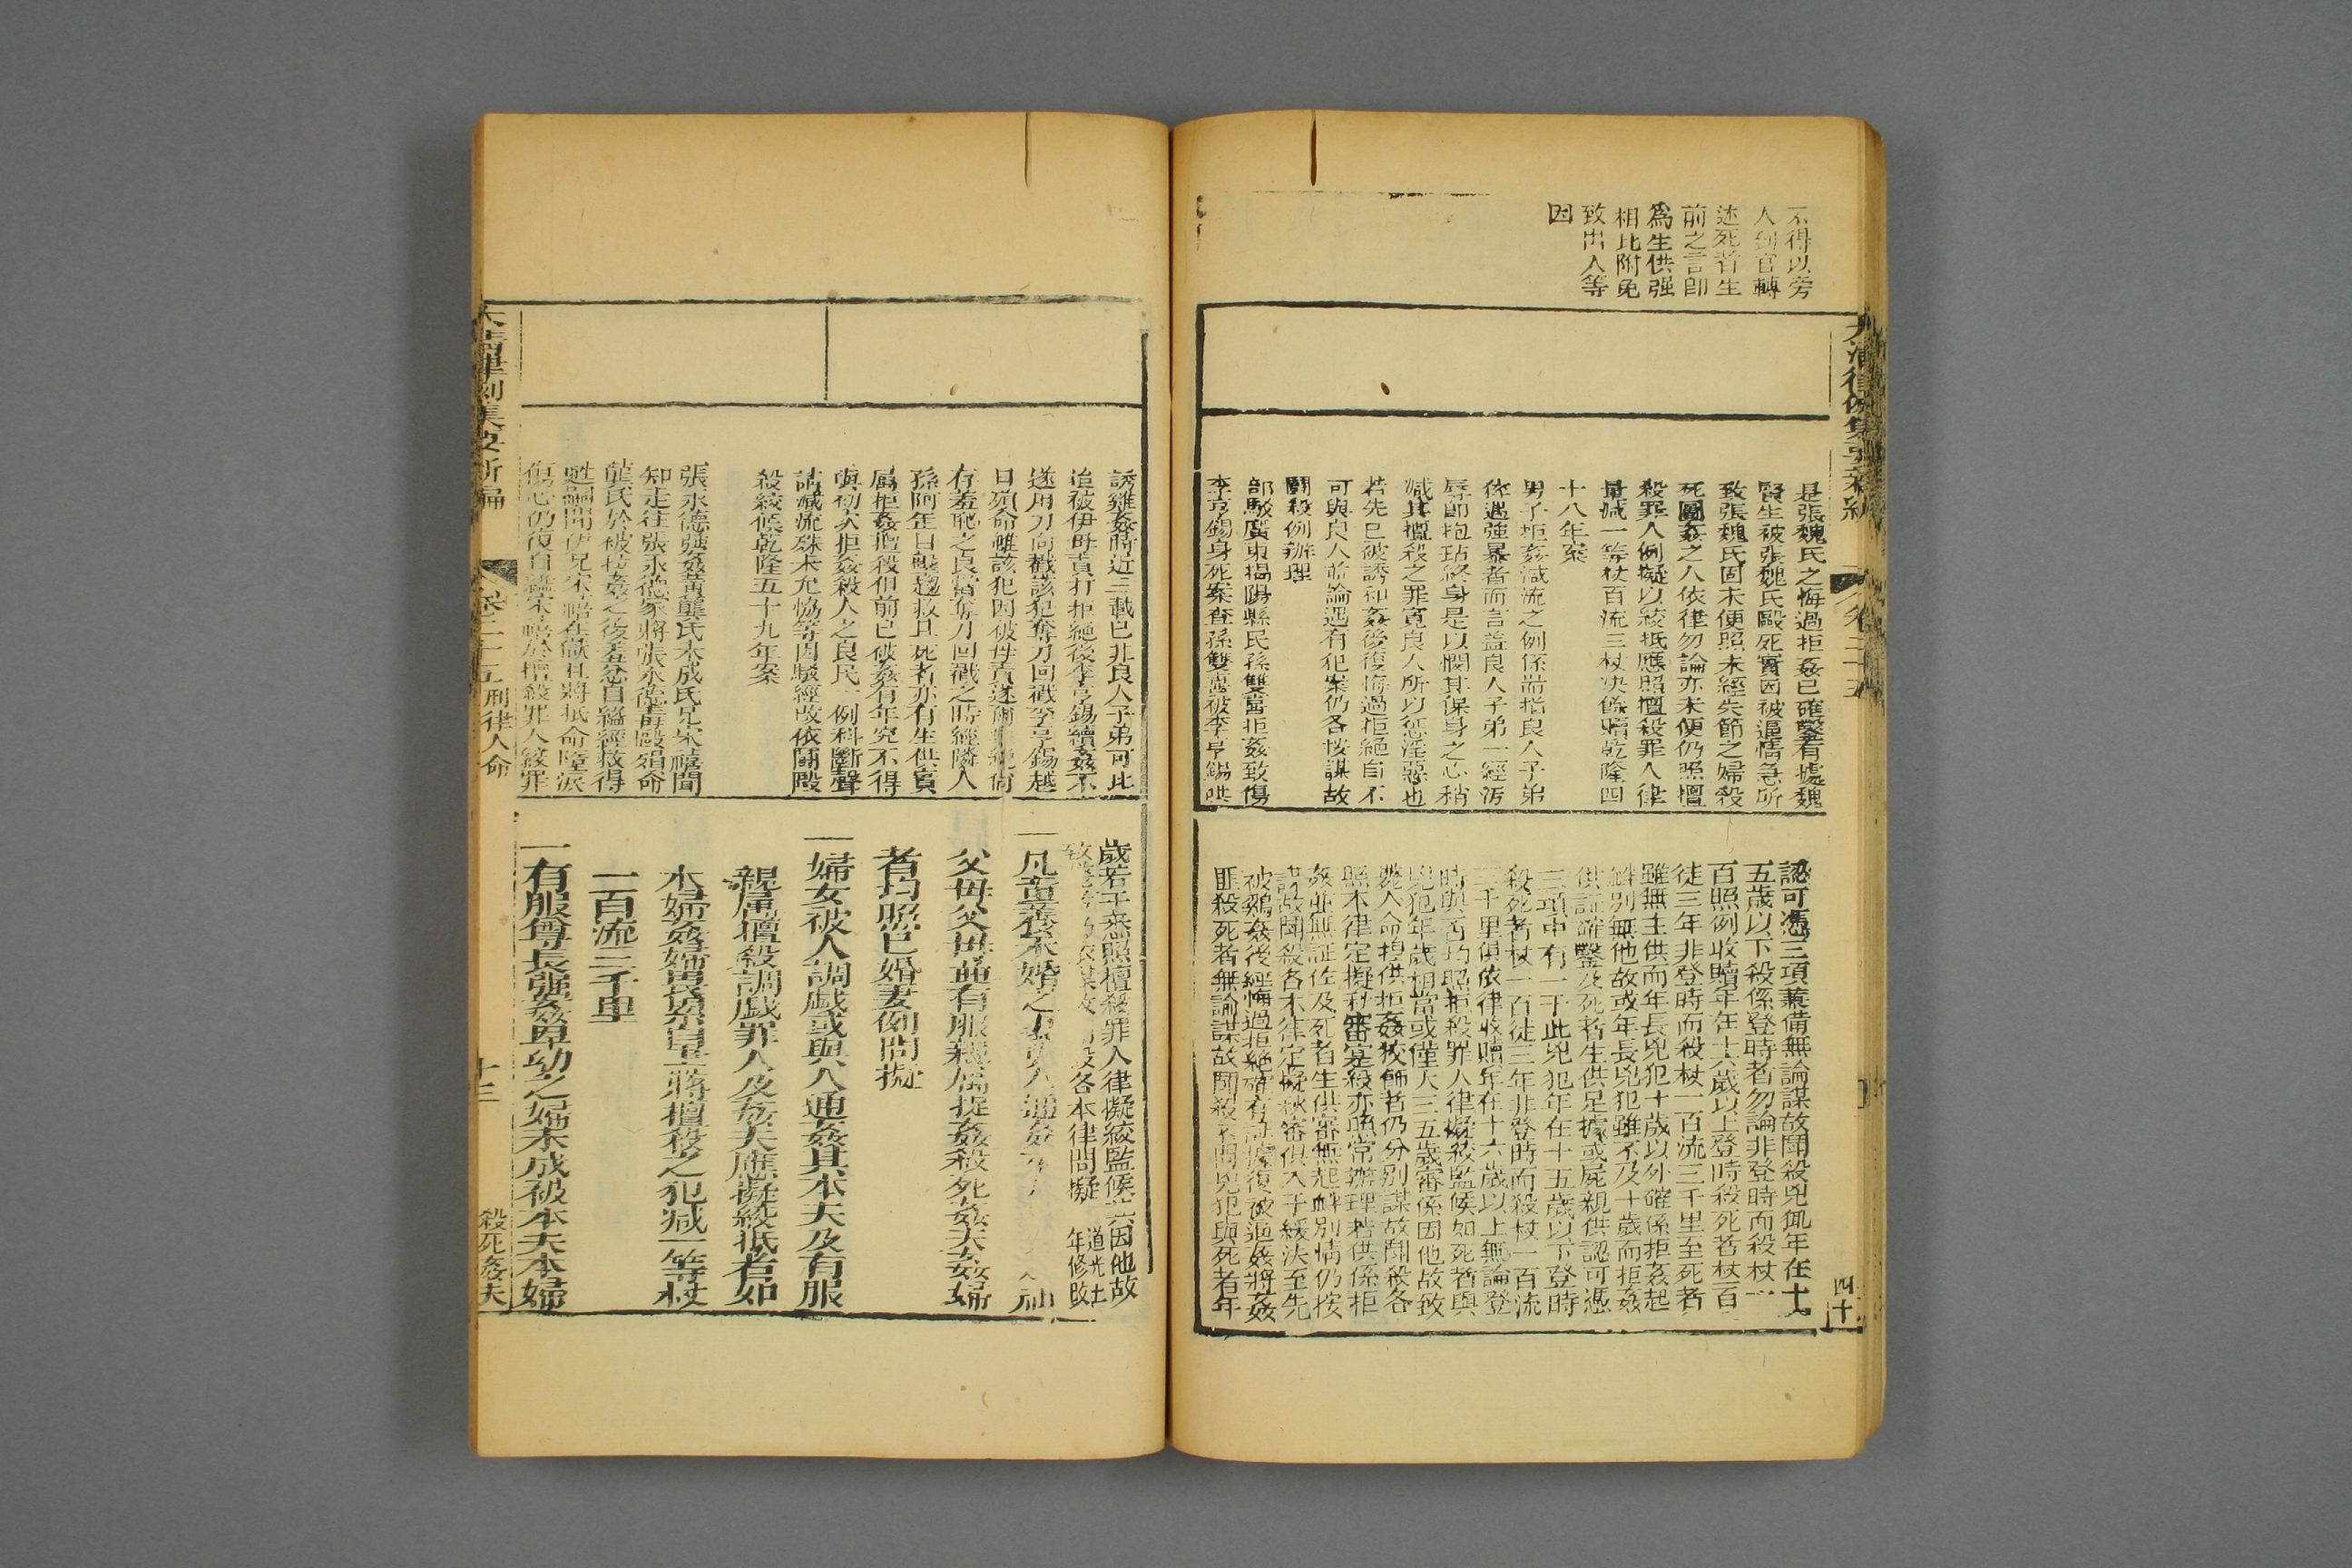 不得以旁
人到官轉
述死者生
前之言卽
爲生供强
相比附免
致出入等
因
是張魏氏之悔過拒姦已確鑿有據魏
賢生被張魏氏毆死實因被逼情急所
致張魏氏固未便照未經失節之婦殺
死圖姦之人依律勿論亦未便仍照擅
殺罪人例擬以絞抵應照擅殺罪人律
量減一等杖百流三杖決餘贖乾隆四
十八年案
男子拒姦減流之例係耑指良人子弟
猝遇強暴者而言蓋良人子弟一經污
辱卽抱玷終身是以憫其保身之心稍
減其擅殺之罪寬良人所以懲淫惡也
若先已被誘和姦後復悔過拒絕自不
可與良人並論遇有犯案仍各按謀故
鬭殺例辦理
部駁廣東揭陽縣民孫雙喜拒姦致傷
李亨錫身死案查孫雙喜被李亨錫哄
認可憑三項兼備無論謀故鬭殺兇犯年在十
五歲以下殺係登時者勿論非登時而殺杖一
百照例收贖年在十六歲以上登時殺死者杖一百
徒三年非登時而殺杖一百流三千里至死者
雖無生供而年長兇犯十歲以外確係拒姦起
衅別無他故或年長兇犯雖不及十歲而拒姦
供証確鑿及死者生供足據或屍親供認可憑
三項中有一于此兇犯年在十五歲以下登時
殺死者杖一百徒三年非登時而殺杖一百流
三千里俱依律收贖年在十六歲以上無論登
時與否均照擅殺罪人律擬絞監候如死者與
兇犯年歲相當或僅大三五歲審係因他故致
斃人命揑供拒姦狡飾者仍分別謀故鬭殺各
照本律定擬秋審實殺亦照常辦理若供係拒
姦並無証佐及死者生供審無起衅別情仍按
謀故鬭殺各本律定擬秋審俱入于緩決至先
被鷄姦後經悔過拒絕確有証據復被逼姦將姦
匪殺死者無論謀故鬭殺不問兇犯與死者年
卷二十五
四十
誘雞姦時近三載已非良人子弟可比
迨被伊母責打拒絕後李亨錫續姦不
遂用刀向戳該犯奪刀回戳李亨錫越
日殞命雖該犯因被母責遂爾拒絕尙
存羞恥之良當奪刀回戳之時經隣人
孫阿年目覩趨救且死者亦有生供實
屬拒姦擅殺但前已被姦有年究不得
與初次拒姦殺人之良民一例科斷聲
請減流殊未允協等因駁經改依鬭毆
殺絞候乾隆五十九年案
張永德强姦黃龔氏未成氏兄宋禧聞
知走往張永德家將張永德毒毆殞命
龔氏於被拉姦之後羞忿自縊經救得
甦嗣聞伊兄宋禧在獄且將抵命墮淚
傷心仍復自縊宋禧於擅殺罪人絞罪
歲若干悉照擅殺罪人律擬絞監候
各本律問擬
道光
年修改
一凡童養未婚之妻與人通姦
父母父母並有服親屬捉姦殺死姦夫姦婦
者均照已婚妻例問擬
一婦女被人調戲或與人通姦其本夫及有服
親屬擅殺調戲罪人及姦夫應擬絞抵者如
本婦姦婦畏累自盡將擅殺之犯減一等杖
一百流三千里
一有服尊長强姦卑幼之婦未成被本夫本婦
大清律例集要新編
卷二十五
刑律人命
十三
殺死姦夫